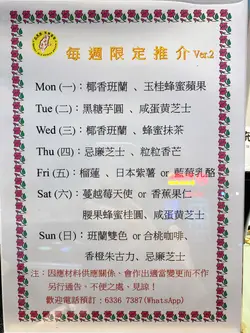 每週限定推介 Ver.2
Mon (一)：椰香班蘭 、玉桂蜂蜜蘋果
Tue (二)：黑糖芋圓 、咸蛋黃芝士
Wed (三)：椰香班蘭 、蜂蜜抹茶
Thu (四)：忌廉芝士 、粒粒香芒
Fri (五)：榴蓮 、日本紫薯 or 藍莓乳酪
Sat (六)：蔓越莓天使 or 香蕉果仁
腰果蜂蜜桂圓、咸蛋黄芝士
Sun (日)：班蘭雙色 or 合桃咖啡、
香橙朱古力、忌廉芝士
注：因應材料供應關係，會作出適當變更而不作
另行通告，不便之處，見諒！
歡迎電話預訂：6336 7387(WhatsApp)